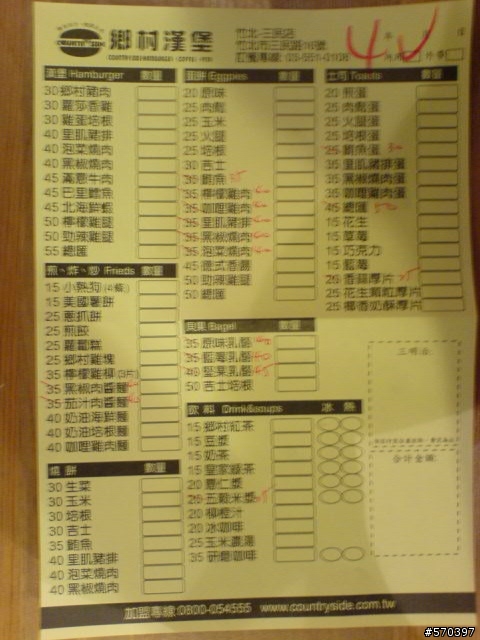 鄉村漢堡
COUNTRYSIDE
竹北-三民店
竹北市三民路16號
訂餐專線:03-551-0108
40
漢堡 Hamburger 數量
30 鄉村豬肉
30 羅莎香雞
30 雞蛋培根
40 里肌豬排
40 泡菜燒肉
40 黑椒燒肉
45 滿意牛肉
45 巴里鱈魚
45 北海鮮蝦
50 檸檬雞腿
50 勁辣雞腿
55 總匯
煎、炸、炒 Frieds 數量
15 小熱狗(4條)
15 美國薯餅
20 蔥抓餅
20 煎餃
20 蘿蔔糕
25 鄉村雞塊
35 檸檬雞柳(3片)
35 黑椒肉醬麵
35 茄汁肉醬麵
40 奶油海鮮麵
40 奶油培根麵
40 咖哩雞肉麵
燒餅 數量
30 生菜
30 玉米
30 培根
30 吉士
35 鮪魚
40 里肌豬排
40 泡菜燒肉
40 黑椒燒肉
蛋餅 Eggpies 數量
20 原味
25 肉鬆
25 玉米
25 火腿
25 培根
30 吉士
30 鮪魚 35
35 檸檬雞肉 40
35 咖哩雞肉 40
35 里肌豬排 40
35 黑椒燒肉 40
35 泡菜燒肉 40
45 德式香腸
50 勁辣雞腿
50 總匯
貝果 Bagel 數量
35 原味乳酪 40
35 藍莓乳酪 40
40 堅果乳酪 45
50 吉士培根
飲料 Drink&soups 冰 熱
15 鄉村紅茶
15 豆漿
15 奶茶
15 皇家綠茶
20 薏仁漿
20 五穀米漿 25
20 柳橙汁
20 冰咖啡
25 玉米濃湯
35 研磨咖啡
土司 Toasts 數量
20 煎蛋
25 肉鬆蛋
25 火腿蛋
25 培根蛋
25 鮪魚蛋 30
35 里肌豬排蛋
35 黑椒燒肉蛋
35 咖哩雞肉蛋
45 總匯 50
15 花生
15 草莓
15 巧克力
15 藍莓
20 香蒜厚片 25
25 花生顆粒厚片
25 椰香奶酥厚片
三明治:
合計金額:
加盟專線:0800-054555 www.countryside.com.tw
#570397